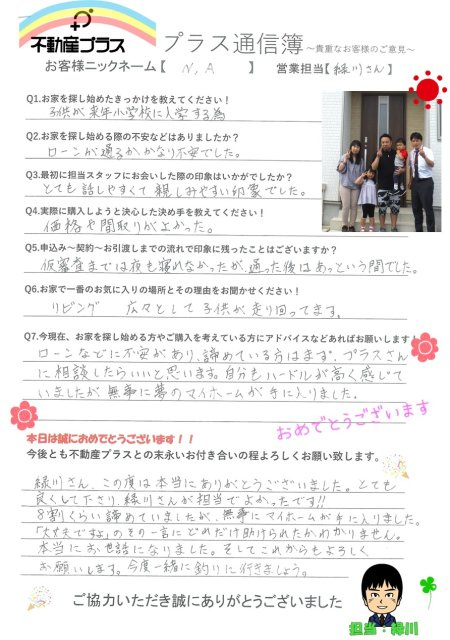 不動産プラス
プラス通信簿 ～貴重なお客様のご意見～
お客様ニックネーム【 N,A 】 営業担当【緑川さん】
Q1.お家を探し始めたきっかけを教えてください！
子供が来年小学校に入学する為
Q2.お家を探し始める際の不安などはありましたか？
ローンが通るかかなり不安でした。
Q3.最初に担当スタッフにお会いした際の印象はいかがでしたか？
とても話しやすくて親しみやすい印象でした。
Q4.実際に購入しようと決心した決め手を教えてください！
価格や間取りがよかった。
Q5.申込み～契約～お引渡しまでの流れで印象に残ったことはございますか？
仮審査までは夜も寝れなかったが、通った後はあっという間でした。
Q6.お家で一番のお気に入りの場所とその理由をお聞かせください！
リビング 広々として子供が走り回ってます。
Q7.今現在、お家を探し始める方やご購入を考えている方にアドバイスなどあればお願いします！
ローンなどに不安があり、諦めている方はまず、プラスさん
に相談したらいいと思います。自分もハードルが高く感じて
いましたが無事に夢のマイホームが手に入りました。
おめでとうございます
本日は誠におめでとうございます！！
今後とも不動産プラスとの末永いお付き合いの程よろしくお願い致します。
緑川さん、この度は本当にありがとうございました。とても
良くして下さり、緑川さんが担当でよかったです!!
8割くらい諦めていましたが、無事にマイホームが手に入りました。
「大丈夫ですよ」のその一言にどれだけ助けられたかわかりません。
本当にお世話になりました。そしてこれからもよろしく
お願いします。今度一緒に釣りに行きましょう。
ご協力いただき誠にありがとうございました
担当・緑川